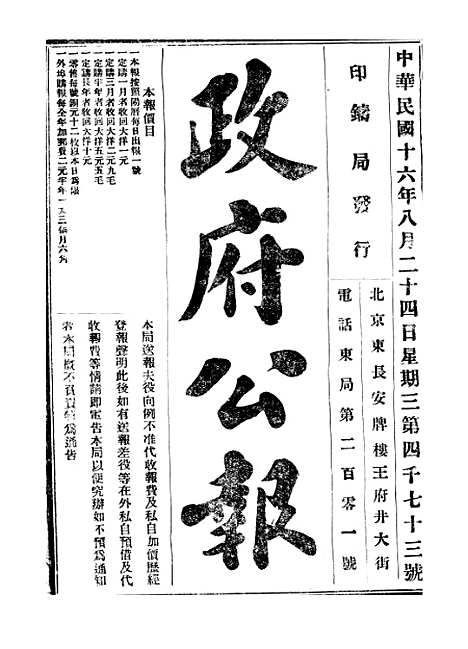 中華民國十六年八月二十四日星期三第四千七十三號
印鑄局發行
北京東長安牌樓王府井大街
電話東局第二百零一號
政府公報
本報價目
一本報按照陽曆每日出報一號
一定購一月者收回大洋一元
一定購三月者收回大洋二元九毛
一定購半年者收回大洋五元五毛
一定購長年者收回大洋十元
一零售每號銅元十二枚以本日為限
一外埠購報每全年加郵費二元半年一元三個月六角
本局送報夫役向例不准代收報費及私自加價歷經
登報聲明此後如有送報差役等在外私自預借及代
收報費等情請即電告本局以便究辦如不預爲通知
者本局概不負責特爲通告